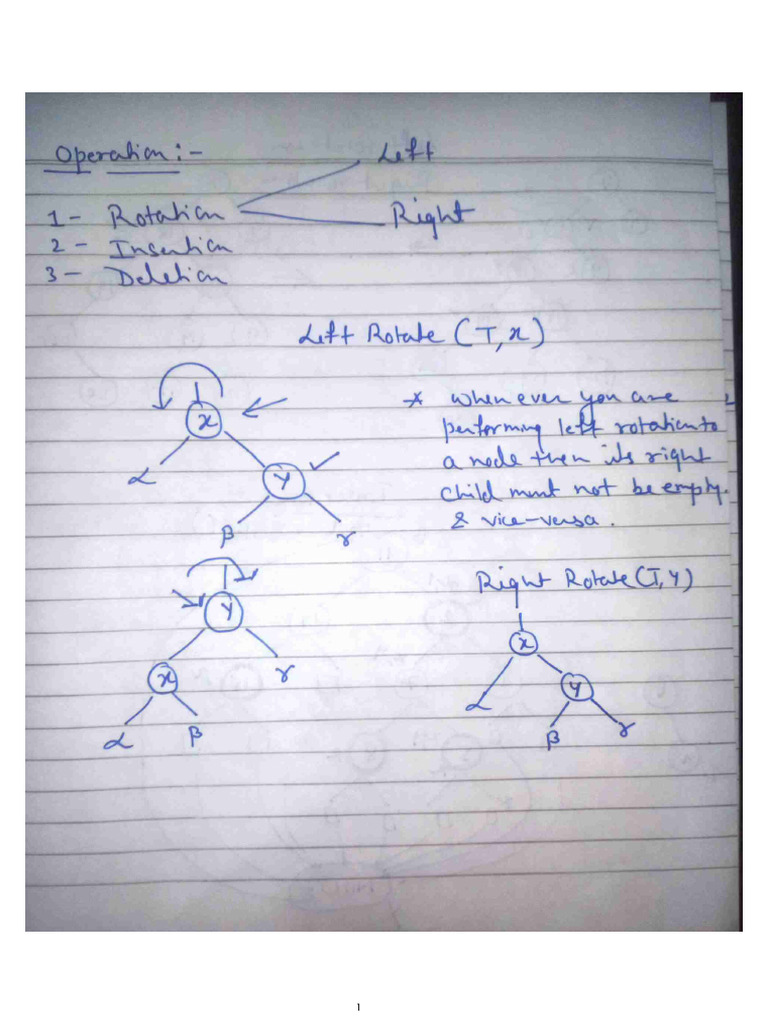 Operation :-
Left
1 - Rotation
Right
2 - Insertion
3 - Deletion
Left Rotate (T, x)
* when ever you are
performing left rotation to
a node then its right
child must not be empty.
& vice-versa.
x
α
y
β
γ
Right Rotate (T, Y)
y
x
γ
α
β
x
α
y
β
γ
1